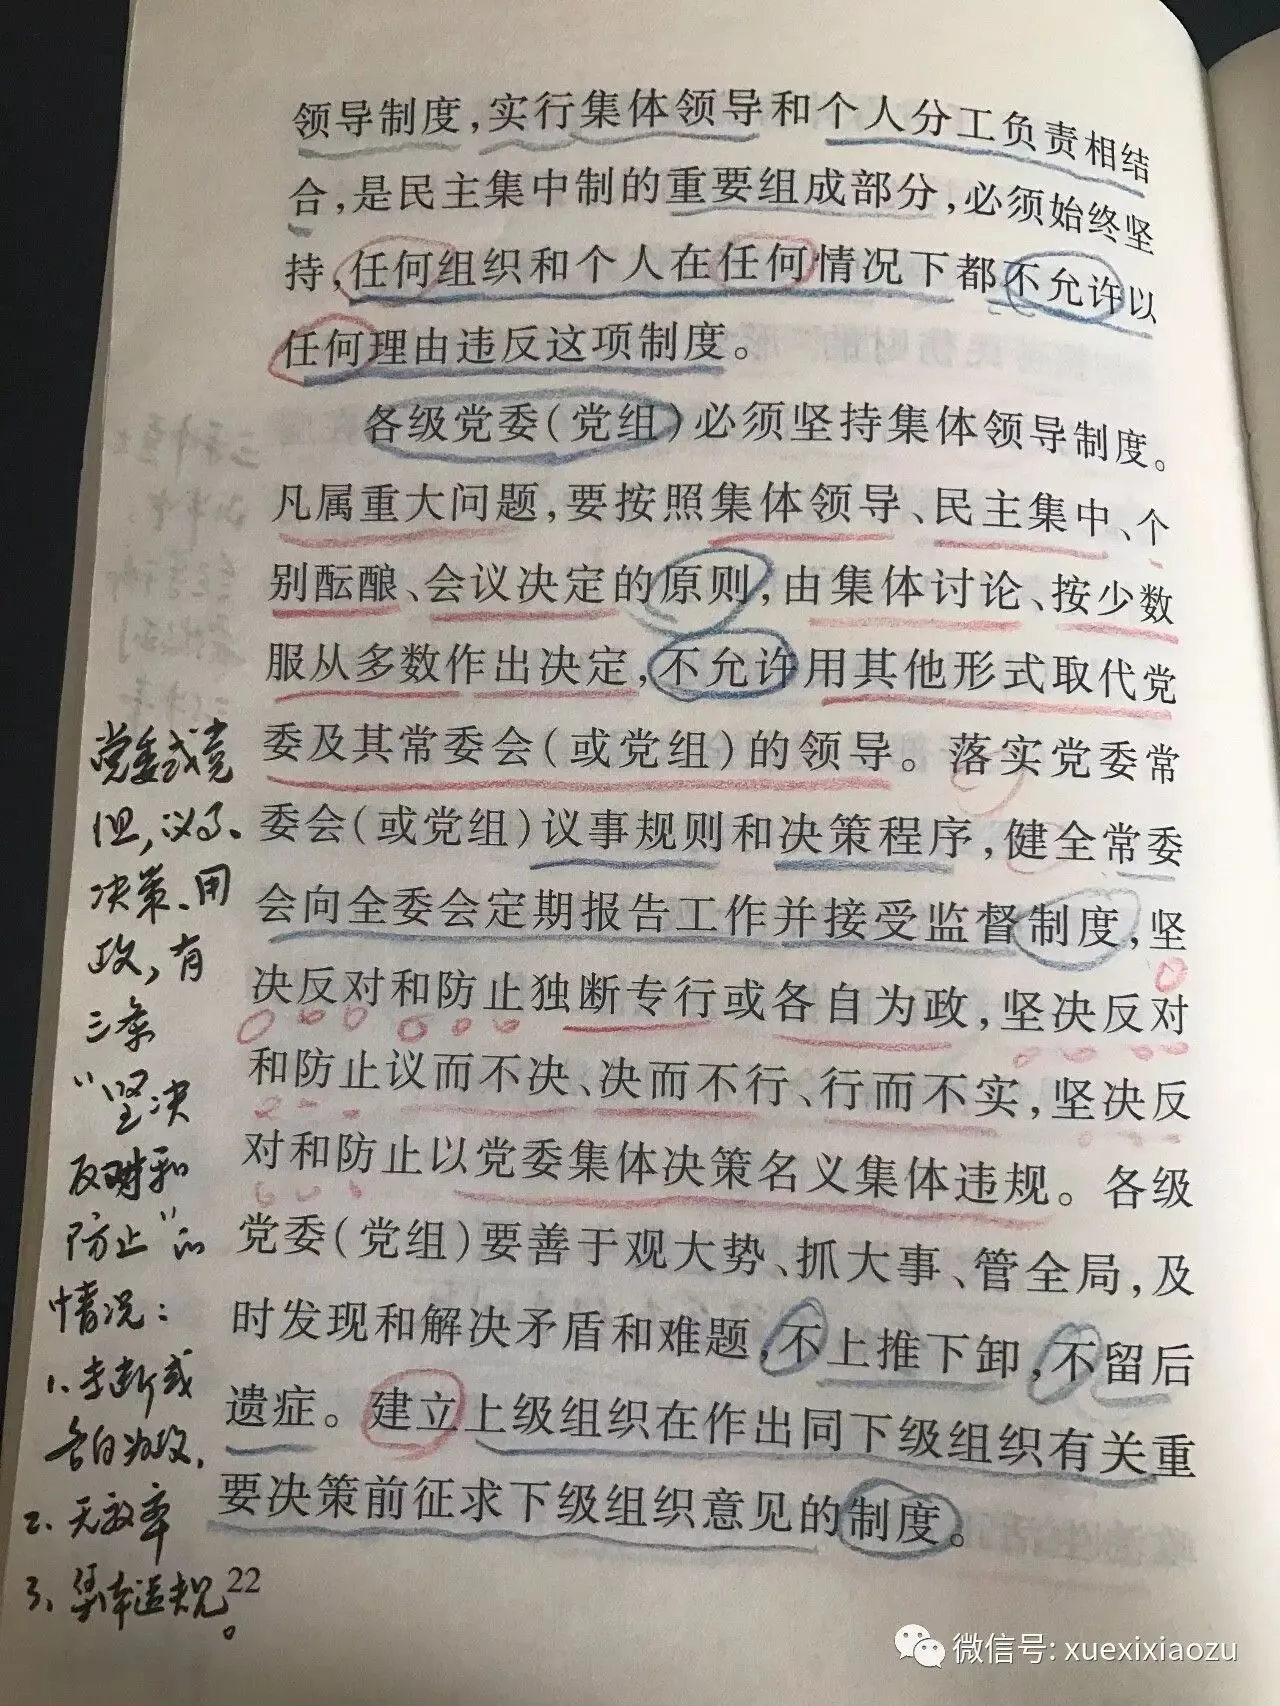 领导制度，实行集体领导和个人分工负责相结
合，是民主集中制的重要组成部分，必须始终坚
持，任何组织和个人在任何情况下都不允许以
任何理由违反这项制度。
各级党委（党组）必须坚持集体领导制度。
凡属重大问题，要按照集体领导、民主集中、个
别酝酿、会议决定的原则，由集体讨论、按少数
服从多数作出决定，不允许用其他形式取代党
委及其常委会（或党组）的领导。落实党委常
委会（或党组）议事规则和决策程序，健全常委
会向全委会定期报告工作并接受监督制度，坚
决反对和防止独断专行或各自为政，坚决反对
和防止议而不决、决而不行、行而不实，坚决反
对和防止以党委集体决策名义集体违规。各级
党委（党组）要善于观大势、抓大事、管全局，及
时发现和解决矛盾和难题，不上推下卸，不留后
遗症。建立上级组织在作出同下级组织有关重
要决策前征求下级组织意见的制度。
党委或党
组，议事、
决策、用
政，有
三条
“坚决
反对和
防止”的
情况：
1、专断或
各自为政，
2、无效率
3、集体违规。
22
微信号: xuexixiaozu